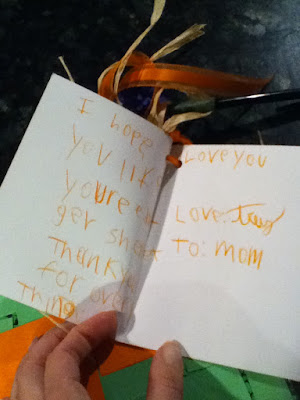 I hope
you lik
youre
ger
thanks
for ever
thing
Love you
Love:
To: mom